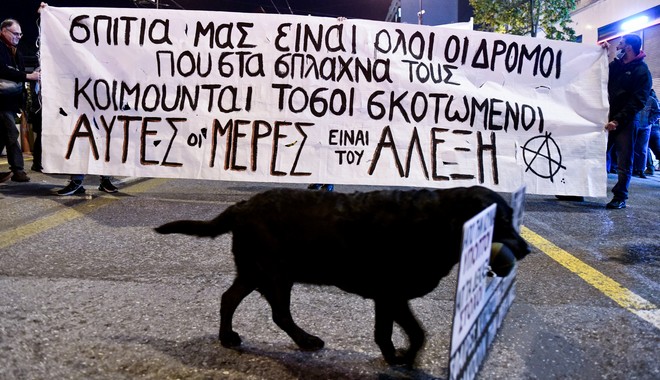 ΣΠΙΤΙΑ ΜΑΣ ΕΙΝΑΙ ΟΛΟΙ ΟΙ ΔΡΟΜΟΙ
ΠΟΥ ΣΤΑ ΣΠΛΑΧΝΑ ΤΟΥΣ
ΚΟΙΜΟΥΝΤΑΙ ΤΟΣΟΙ ΣΚΟΤΩΜΕΝΟΙ
ΑΥΤΕΣ ΟΙ ΜΕΡΕΣ ΕΙΝΑΙ ΤΟΥ ΑΛΕΞΗ